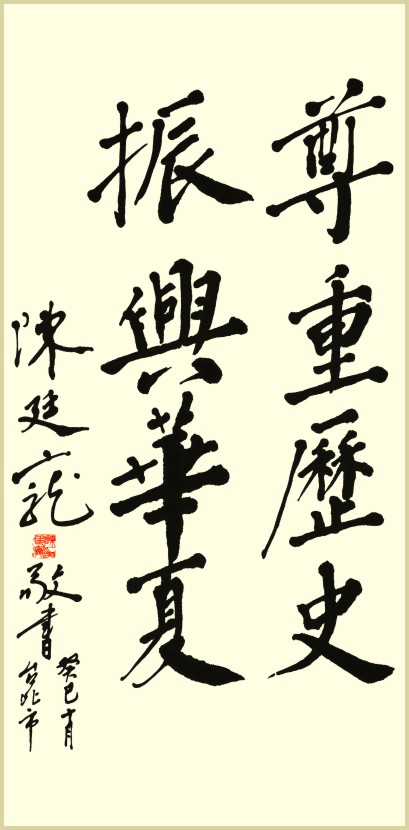 尊重歷史
振興華夏
陳廷寵
敬書
癸巳十月
台北市